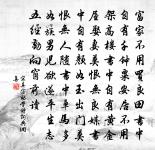 富家不用買良田書中
自有千鍾粟安居不用
架高樓書中自有黃金
屋娶妻莫恨無良媒書
中自有顏如玉出門莫
恨無人隨書中車馬多
如簇男兒欲遂平生志
五經勤向窗前讀